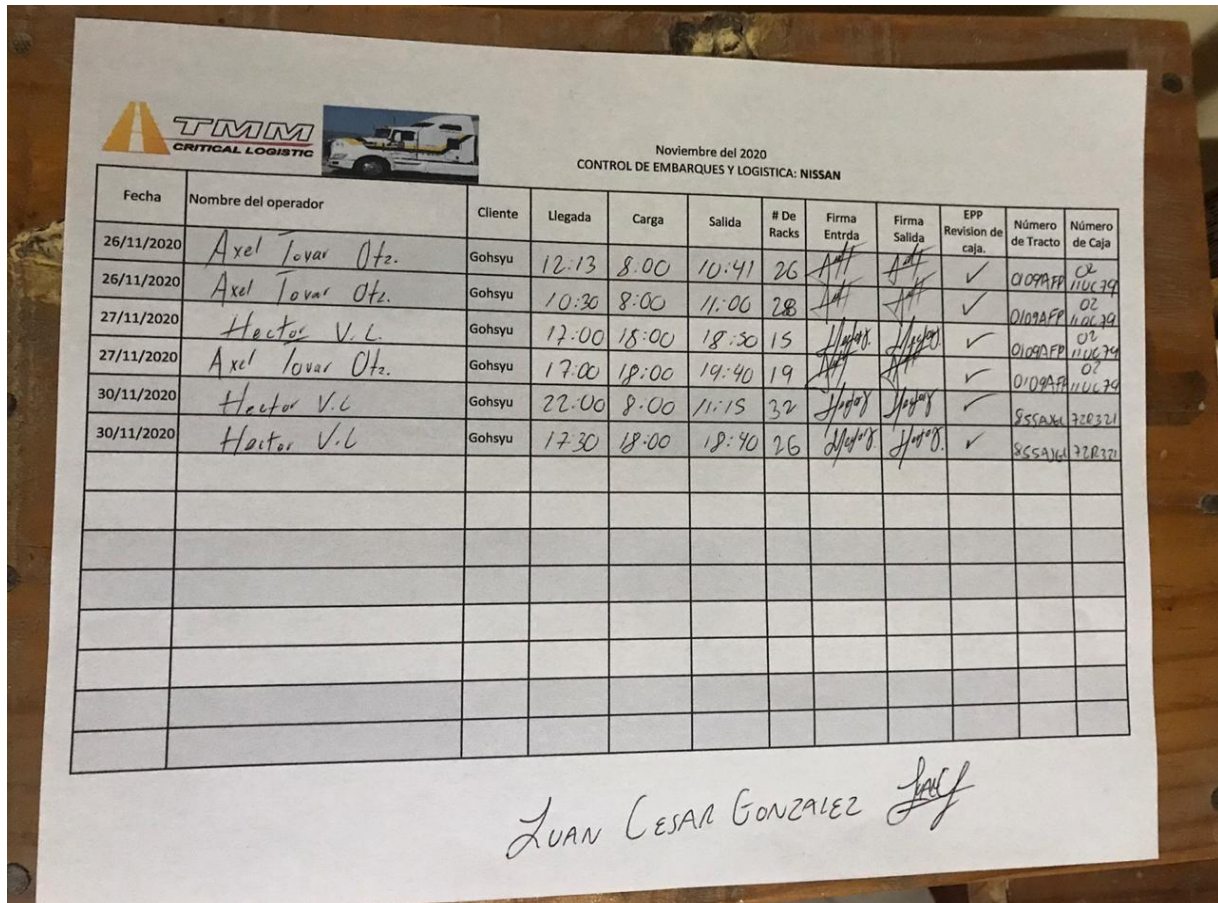 TMM
CRITICAL LOGISTIC
Noviembre del 2020
CONTROL DE EMBARQUES Y LOGISTICA: NISSAN
Fecha Nombre del operador Cliente Llegada Carga Salida # De Racks Firma Entrda Firma Salida EPP Revision de caja. Número de Tracto Número de Caja
26/11/2020 Axel Tovar Otz. Gohsyu 12:13 8:00 10:41 26 ✓ 0109AFP 02 11UC79
26/11/2020 Axel Tovar Otz. Gohsyu 10:30 8:00 11:00 28 ✓ 0109AFP 02 11UC79
27/11/2020 Hector V.L. Gohsyu 17:00 18:00 18:50 15 ✓ 0109AFP 02 11UC79
27/11/2020 Axel Tovar Otz. Gohsyu 17:00 18:00 19:40 19 ✓ 0109AFP 02 11UC79
30/11/2020 Hector V.L Gohsyu 22:00 8:00 11:15 32 ✓ 72R321
30/11/2020 Hector V.L Gohsyu 17:30 18:00 18:40 26 ✓ 72R321
JUAN CESAR GONZALEZ